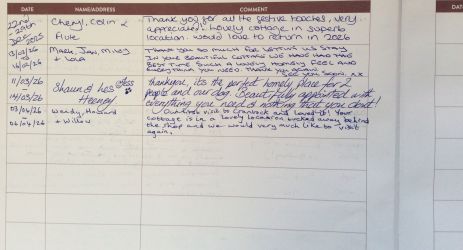 DATE NAME/ADDRESS COMMENT DATE
22nd Cheryl, Colin & Thank you for all the festive touches, very
- 29th Flute appreciated. Lovely cottage in superb
Dec 2025 location. Would love to return in 2026
Mark, Jan, THANK YOU SO MUCH FOR LETTING US STAY
IN YOUR BEAUTIFUL COTTAGE WE HAVE HAD THE
BEST TIME. SUCH A LOVELY HOMELY FEEL AND
EVERYTHING YOU NEED. THANK YOU AGAIN.
SEE YOU SOON. XX
11/03/26 Shaun & Thankyou, it's the perfect homely place for 2
- people and our dog. Beautifully appointed with
14/03/26 Heeney everything you need & nothing that you don't!
03/04/26 Wendy, Howard Our first visit to Cranbock and loved it! Your
- + Willow cottage is in a lovely location tucked away behind
06/04/26 the shop and we would very much like to visit
again.